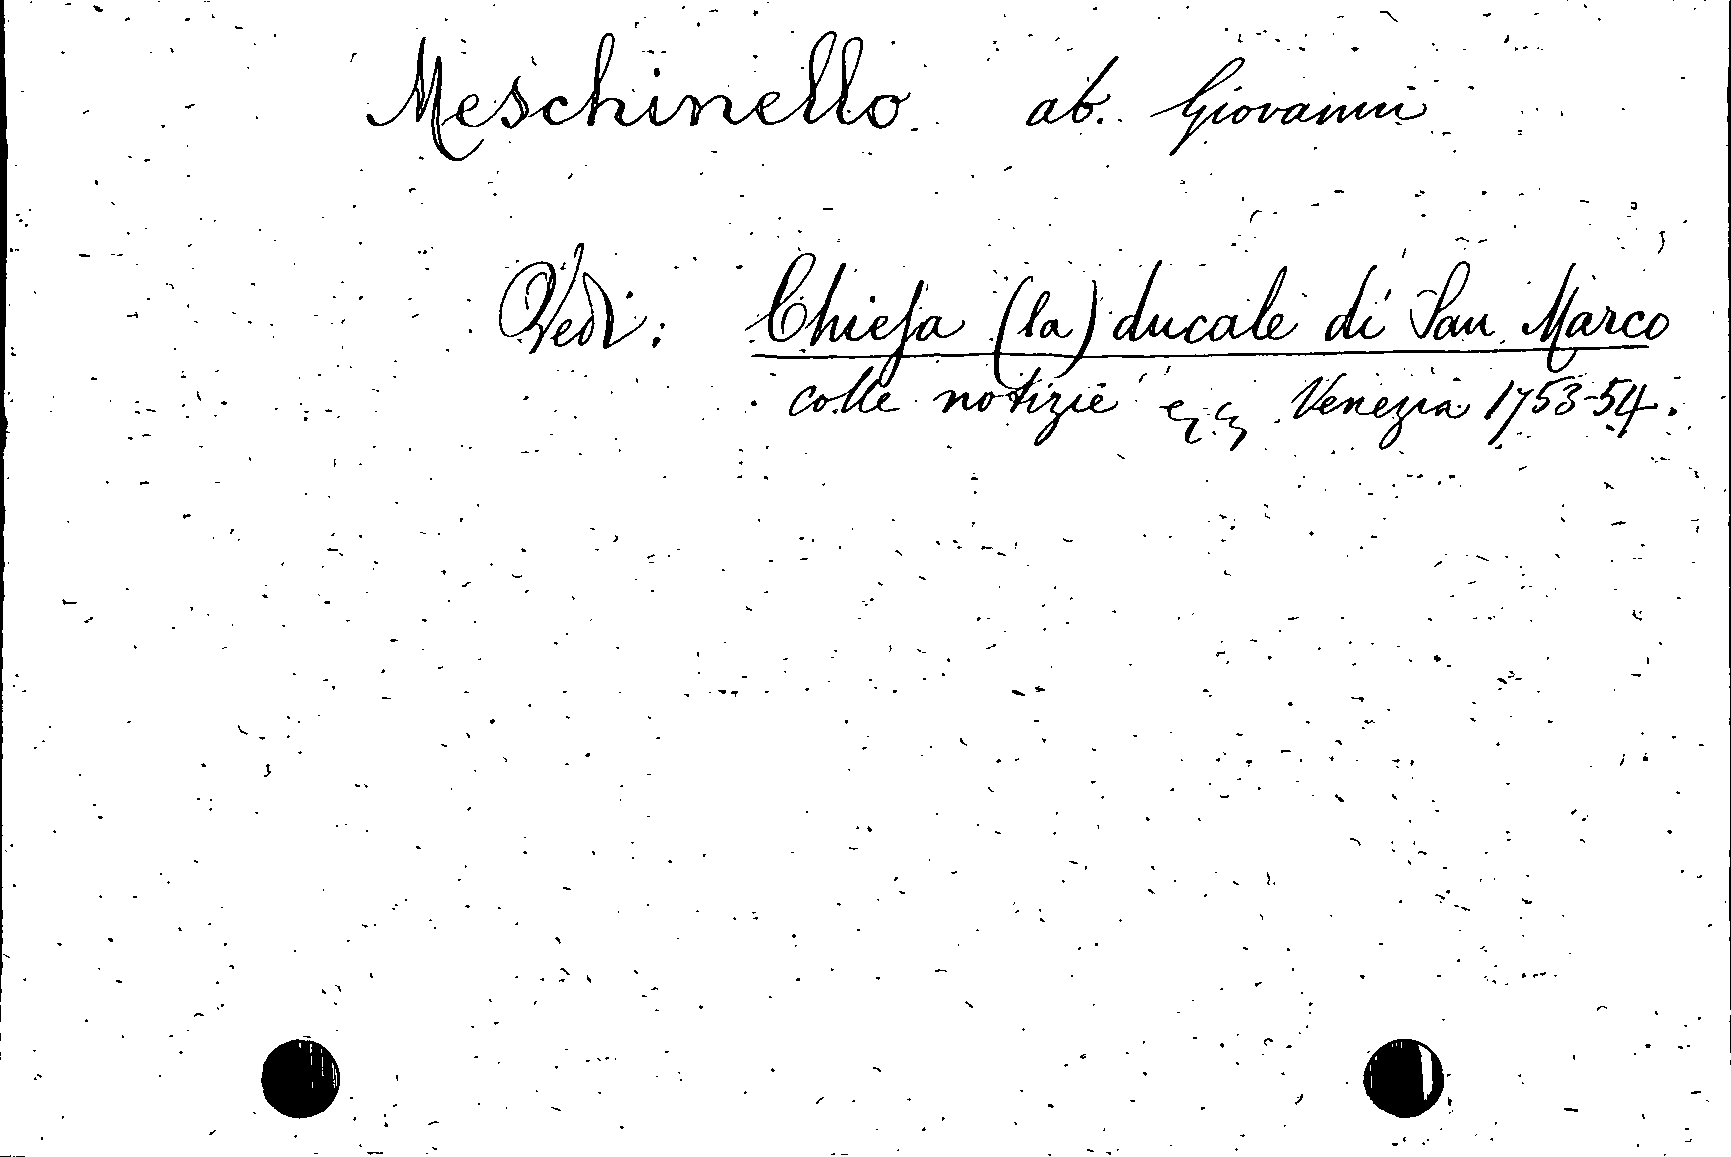 Meschinello ab. Giovanni
Vedi: Chiesa (la) ducale di San Marco
colle notizie ec. ec. Venezia 1753-54.